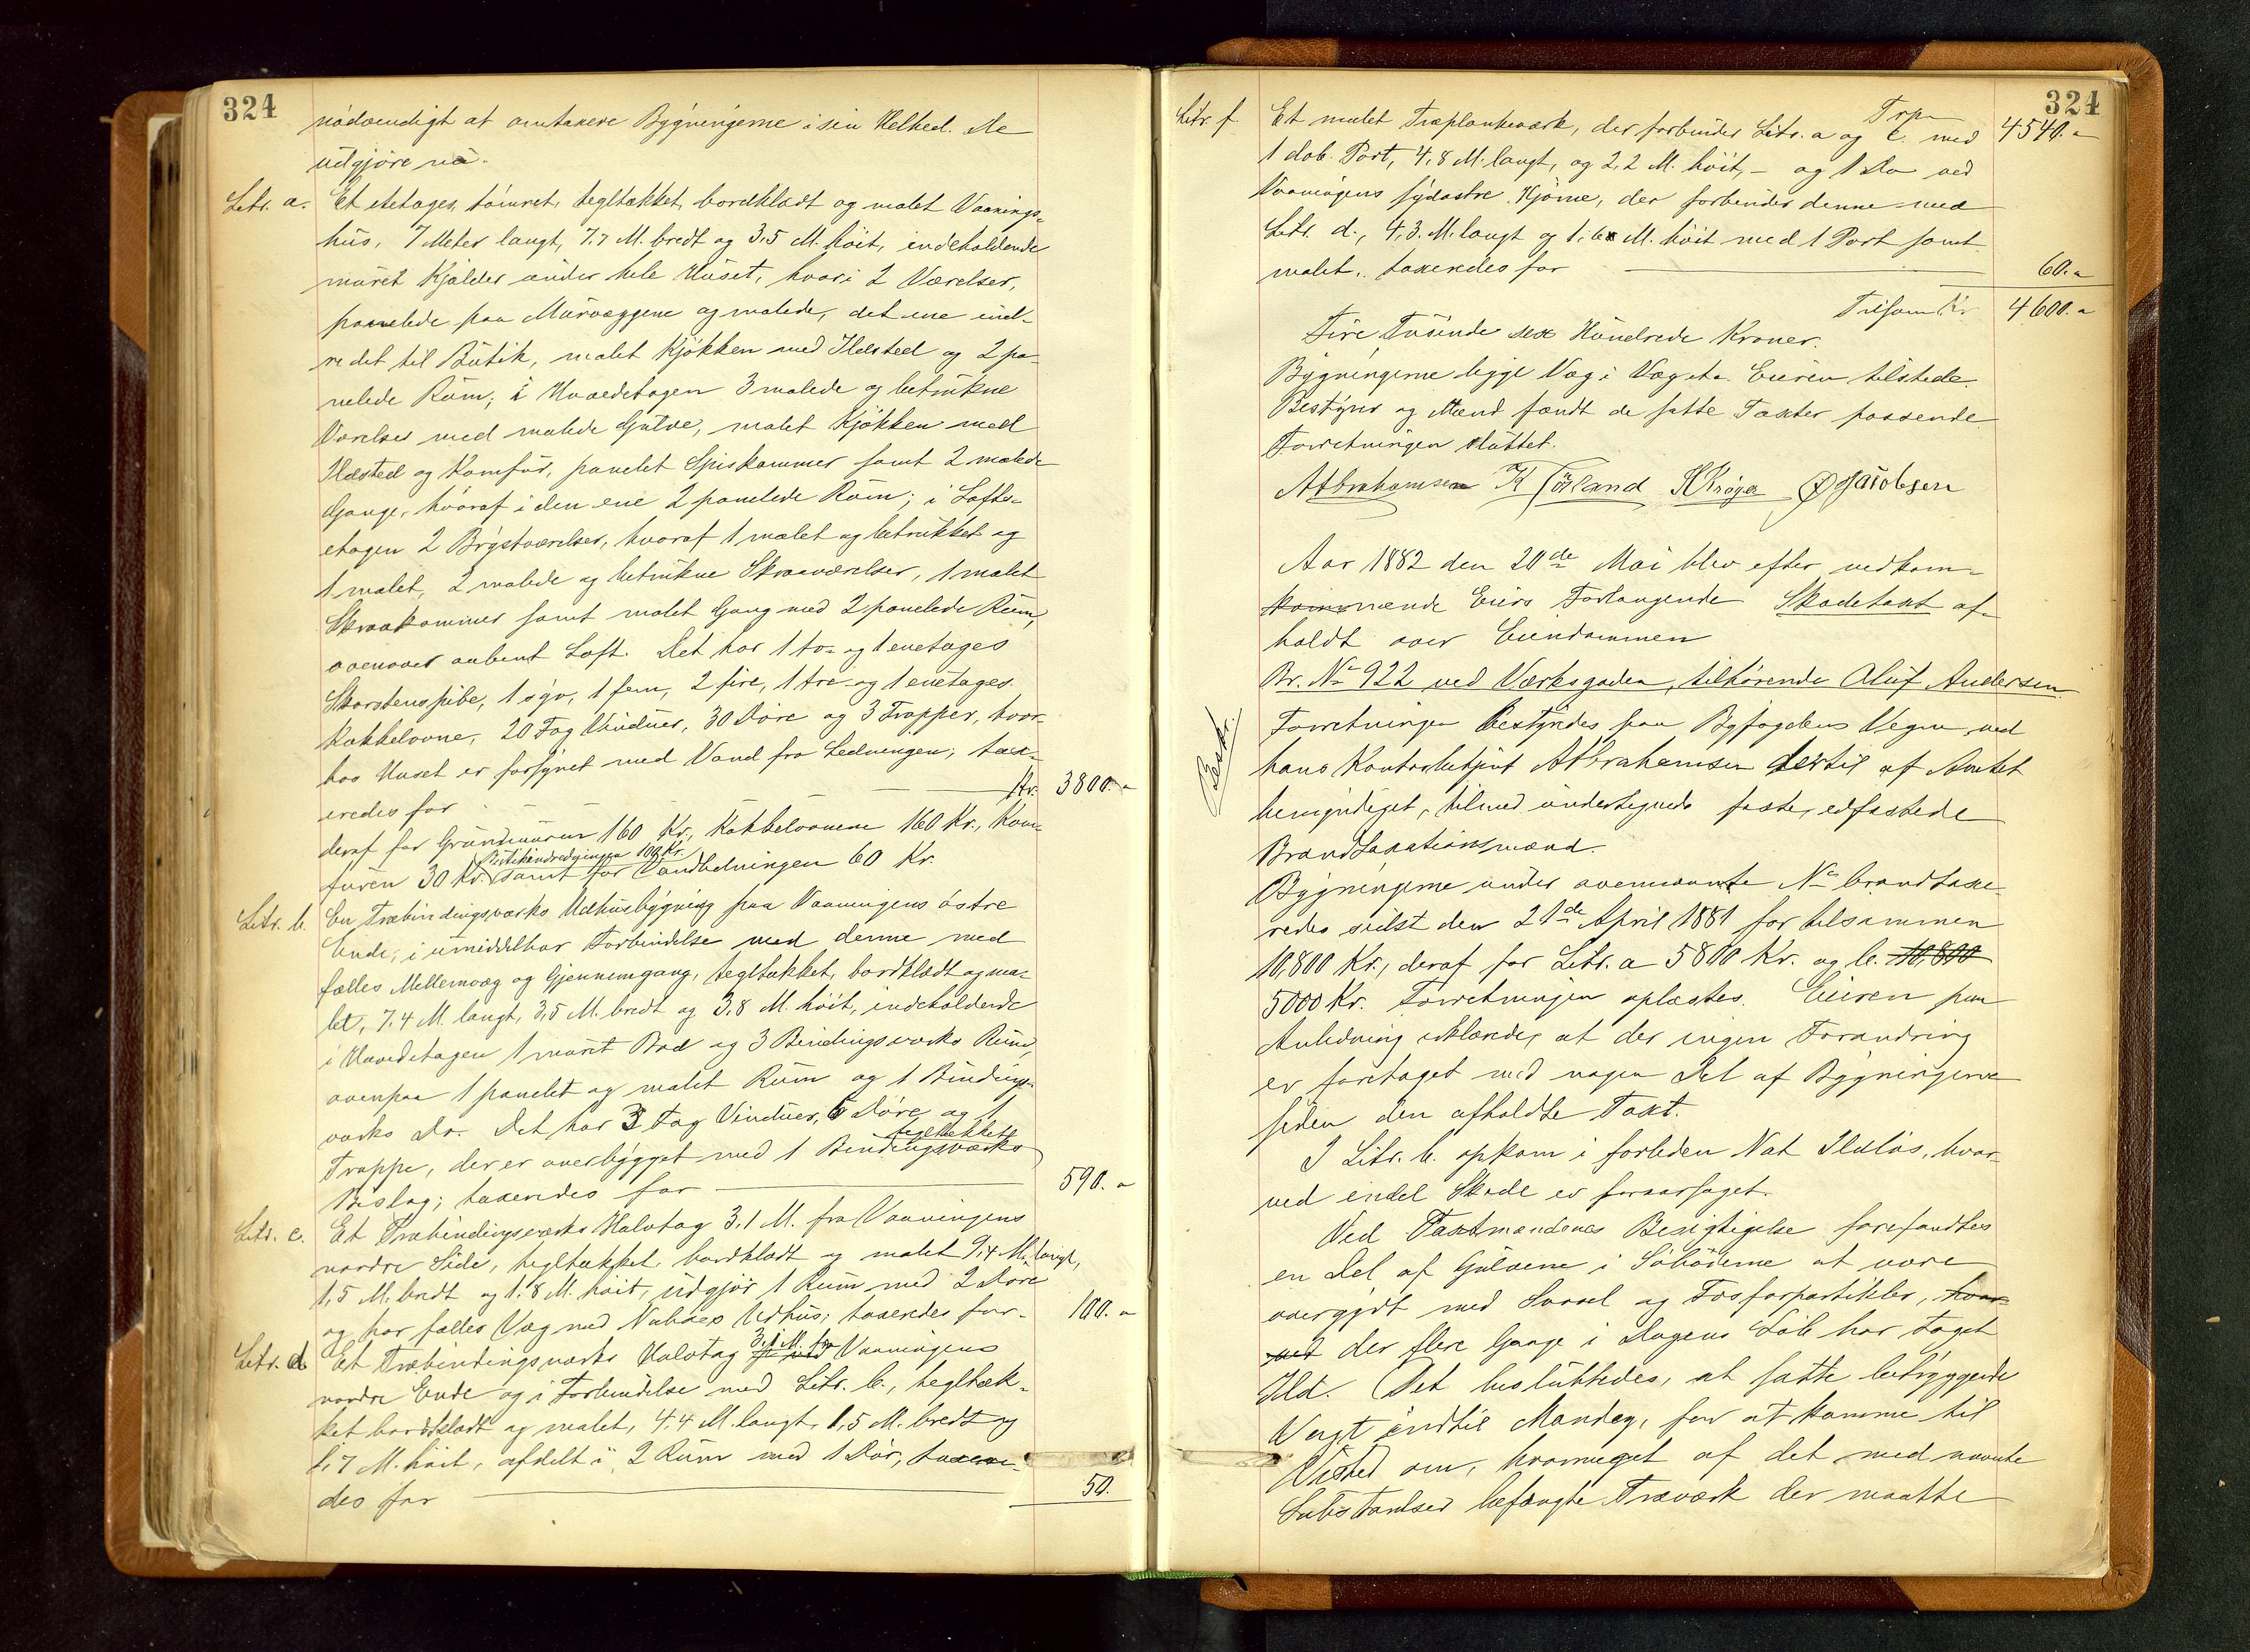 324
nödvendigt at omtaxere Bygningerne i sin Helhed. De
udgjöre nu:
Litr. a. Et etetages, tömret, tegltækket, bordklædt og malet Vaanings-
hus, 7 Meter langt, 7.7 M. bredt og 3,5 M. höit, indeholdende
muret Kjælder under hele Huset, hvori 2 Værelser,
panelede paa Murvæggene og malede, det ene ind-
redet til Butik, malet Kjökken med Ildsted og 2 pa-
nelede Rum; i Hovedetagen 3 malede og betrukne
Værelser med malede Gulve, malet Kjökken med
Ildsted og Komfur, panelet Spiskammer samt 2 malede
Gange, hvoraf i den ene 2 panelede Rum; i Lofts-
etagen 2 Brystværelser, hvoraf 1 malet og betrukket og
1 malet, 2 malede og betrukne Skraaværelser, 1 malet
Skraakammer samt malet Gang med 2 panelede Rum,
ovenover aabent Loft. Det har 1 to- og 1 enetages
Skorstenspibe, 1 syv, 1 fem, 2 fire, 1 tre og 1 enetages
Kakkelovne, 20 Fag Vinduer, 30 Döre og 3 Trapper, hvor-
hos Huset er forsynet med Vand fra Ledningen; tax-
eredes for Kr. 3800. "
deraf for Grundmuren 160 Kr., Kakkelovnene 160 Kr., Kom-
Butikindredningen 100 Kr.
furen 30 Kr. samt for Vandledningen 60 Kr.
Litr. b. En Træbindingsværks Udhusbygning paa Vaaningens östre
Ende, i umiddelbar Forbindelse med denne med
fælles Mellemvæg og Gjennemgang, tegltækket, bordklædt og ma-
let, 7.4 M. langt, 3,5 M. bredt og 3,8 M. höit, indeholdende
i Hovedetagen 1 muret Bod og 3 Bindingsværks Rum,
ovenpaa 1 panelet og malet Rum og 1 Bindings-
værks Do. Det har 3 Fag Vinduer, 6 Döre og 1
tegltækket
Trappe, der er overbygget med 1 Bindingsværks
Bislag; taxeredes for 590. "
Litr. c. Et Træbindingsværks Halvtag 3,1 M. fra Vaaningens
nordre Side, tegltækket, bordklædt og malet 9,4 M. langt,
1,5 M. bredt og 1,8 M. höit, udgjör 1 Rum med 2 Döre
og har fælles Væg med Naboes Udhus; taxeredes for 100. "
3,1 M. fra
Litr. d. Et Træbindingsværks Halvtag ved Vaaningens
nordre Ende og i Forbindelse med Litr. b., tegltæk-
ket bordklædt og malet, 4.4 M. langt, 1,5 M. bredt og
1,7 M. höit, afdelt i 2 Rum med 1 Dör, taxere-
des for 50.
324
Trpr 4540. "
Litr. f. Et malet Træplankeværk, der forbinder Litr. a og c. med
1 dob. Port, 4,8 M. langt, og 2,2 M. höit, - og 1 Do ved
Vaaningens sydöstre Hjörne, der forbinder denne med
Litr. d., 4,3. M. langt og 1,6 M. höit med 1 Port samt
malet, taxeredes for 60. "
Tilsam Kr. 4600. "
Fire Tusinde sex Hundrede Kroner.
Bygningerne ligge Væg i Væg etc. Eieren tilstede.
Bestyrer og Mænd fandt de satte Taxter passende
Forretningen sluttet.
A Abrahamsen K Förland H Kröger O Jacobsen
Aar 1882 den 20de Mai blev efter vedkom-
kommende Eiers Forlangende Skadetaxt af-
holdt over Eiendommen
Br. No 922 ved Værksgaden, tilhörende Oluf Andersen
Forretningen bestyredes paa Byfogdens Vegne ved
hans Kontorbetjent A Abrahamsen dertil af Amtet
bemyndiget, tilmed undertegnede faste, edfæstede
Brandtaxationsmænd.
Beskr.
Bygningerne under ovennævnte No brandtaxe-
redes sidst den 21de April 1881 for tilsammen
10,800 Kr., deraf for Litr. a 5800 Kr. og b. 10,800
5000 Kr. Forretningen oplæstes. Eieren paa
Anledning erklærede, at der ingen Forandring
er foretaget med nogen Del af Bygningerne
siden den afholdte Taxt.
I Litr. b. opkom i forleden Nat Ildlös, hvor-
ved endel Skade er foraarsaget.
Ved Taxtmændenes Besigtigelse forefandtes
en Del af Gulvene i Söboderne at være
overgydt med Svovl og Fosforpartikler, hvor-
ved der flere Gange i Dagens Löb har taget
Ild. Det besluttedes, at sætte betryggende
Vagt indtil Mandag, for at komme til
Vished om, hvormeget af det med nævnte
Substantser befængte Træværk der maatte